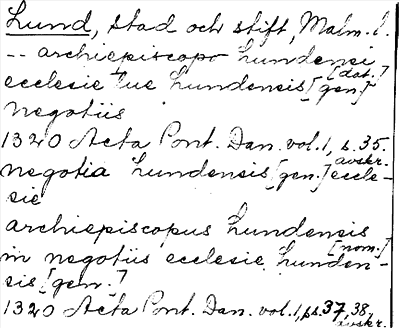 Lund, stad och stift, Malm. l.
-- archiepiscopo Lundensi
[dat.]
ecclesie tue Lundensis [gen.]
negotiis
1320 Acta Pont. Dan. vol. 1, s. 35.
avskr.
negotia Lundensis [gen.] eccle-
sie
archiepiscopus Lundensis
[nom.]
in negotiis ecclesie Lunden-
sis [gen.]
1320 Acta Pont. Dan. vol. 1, ss. 37, 38.
avskr.